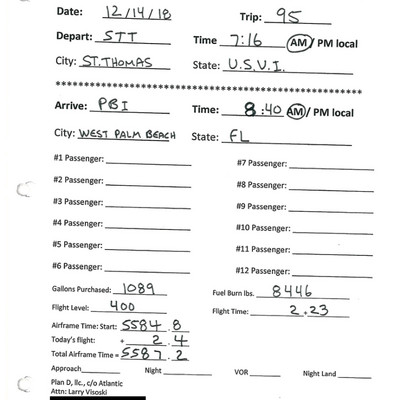 Date: 12/14/18 Trip: 95
Depart: STT Time 7:16 AM / PM local
City: ST.THOMAS State: U.S.V.I.
************************************************************
Arrive: PBI Time: 8:40 AM / PM local
City: WEST PALM BEACH State: FL
#1 Passenger: #7 Passenger:
#2 Passenger: #8 Passenger:
#3 Passenger: #9 Passenger:
#4 Passenger: #10 Passenger:
#5 Passenger: #11 Passenger:
#6 Passenger: #12 Passenger:
Gallons Purchased: 1089 Fuel Burn lbs. 8446
Flight Level: 400 Flight Time: 2.23
Airframe Time: Start: 5584.8
Today's flight: + 2.4
Total Airframe Time = 5587.2
Approach Night VOR Night Land
Plan D, llc., c/o Atlantic
Attn: Larry Visoski